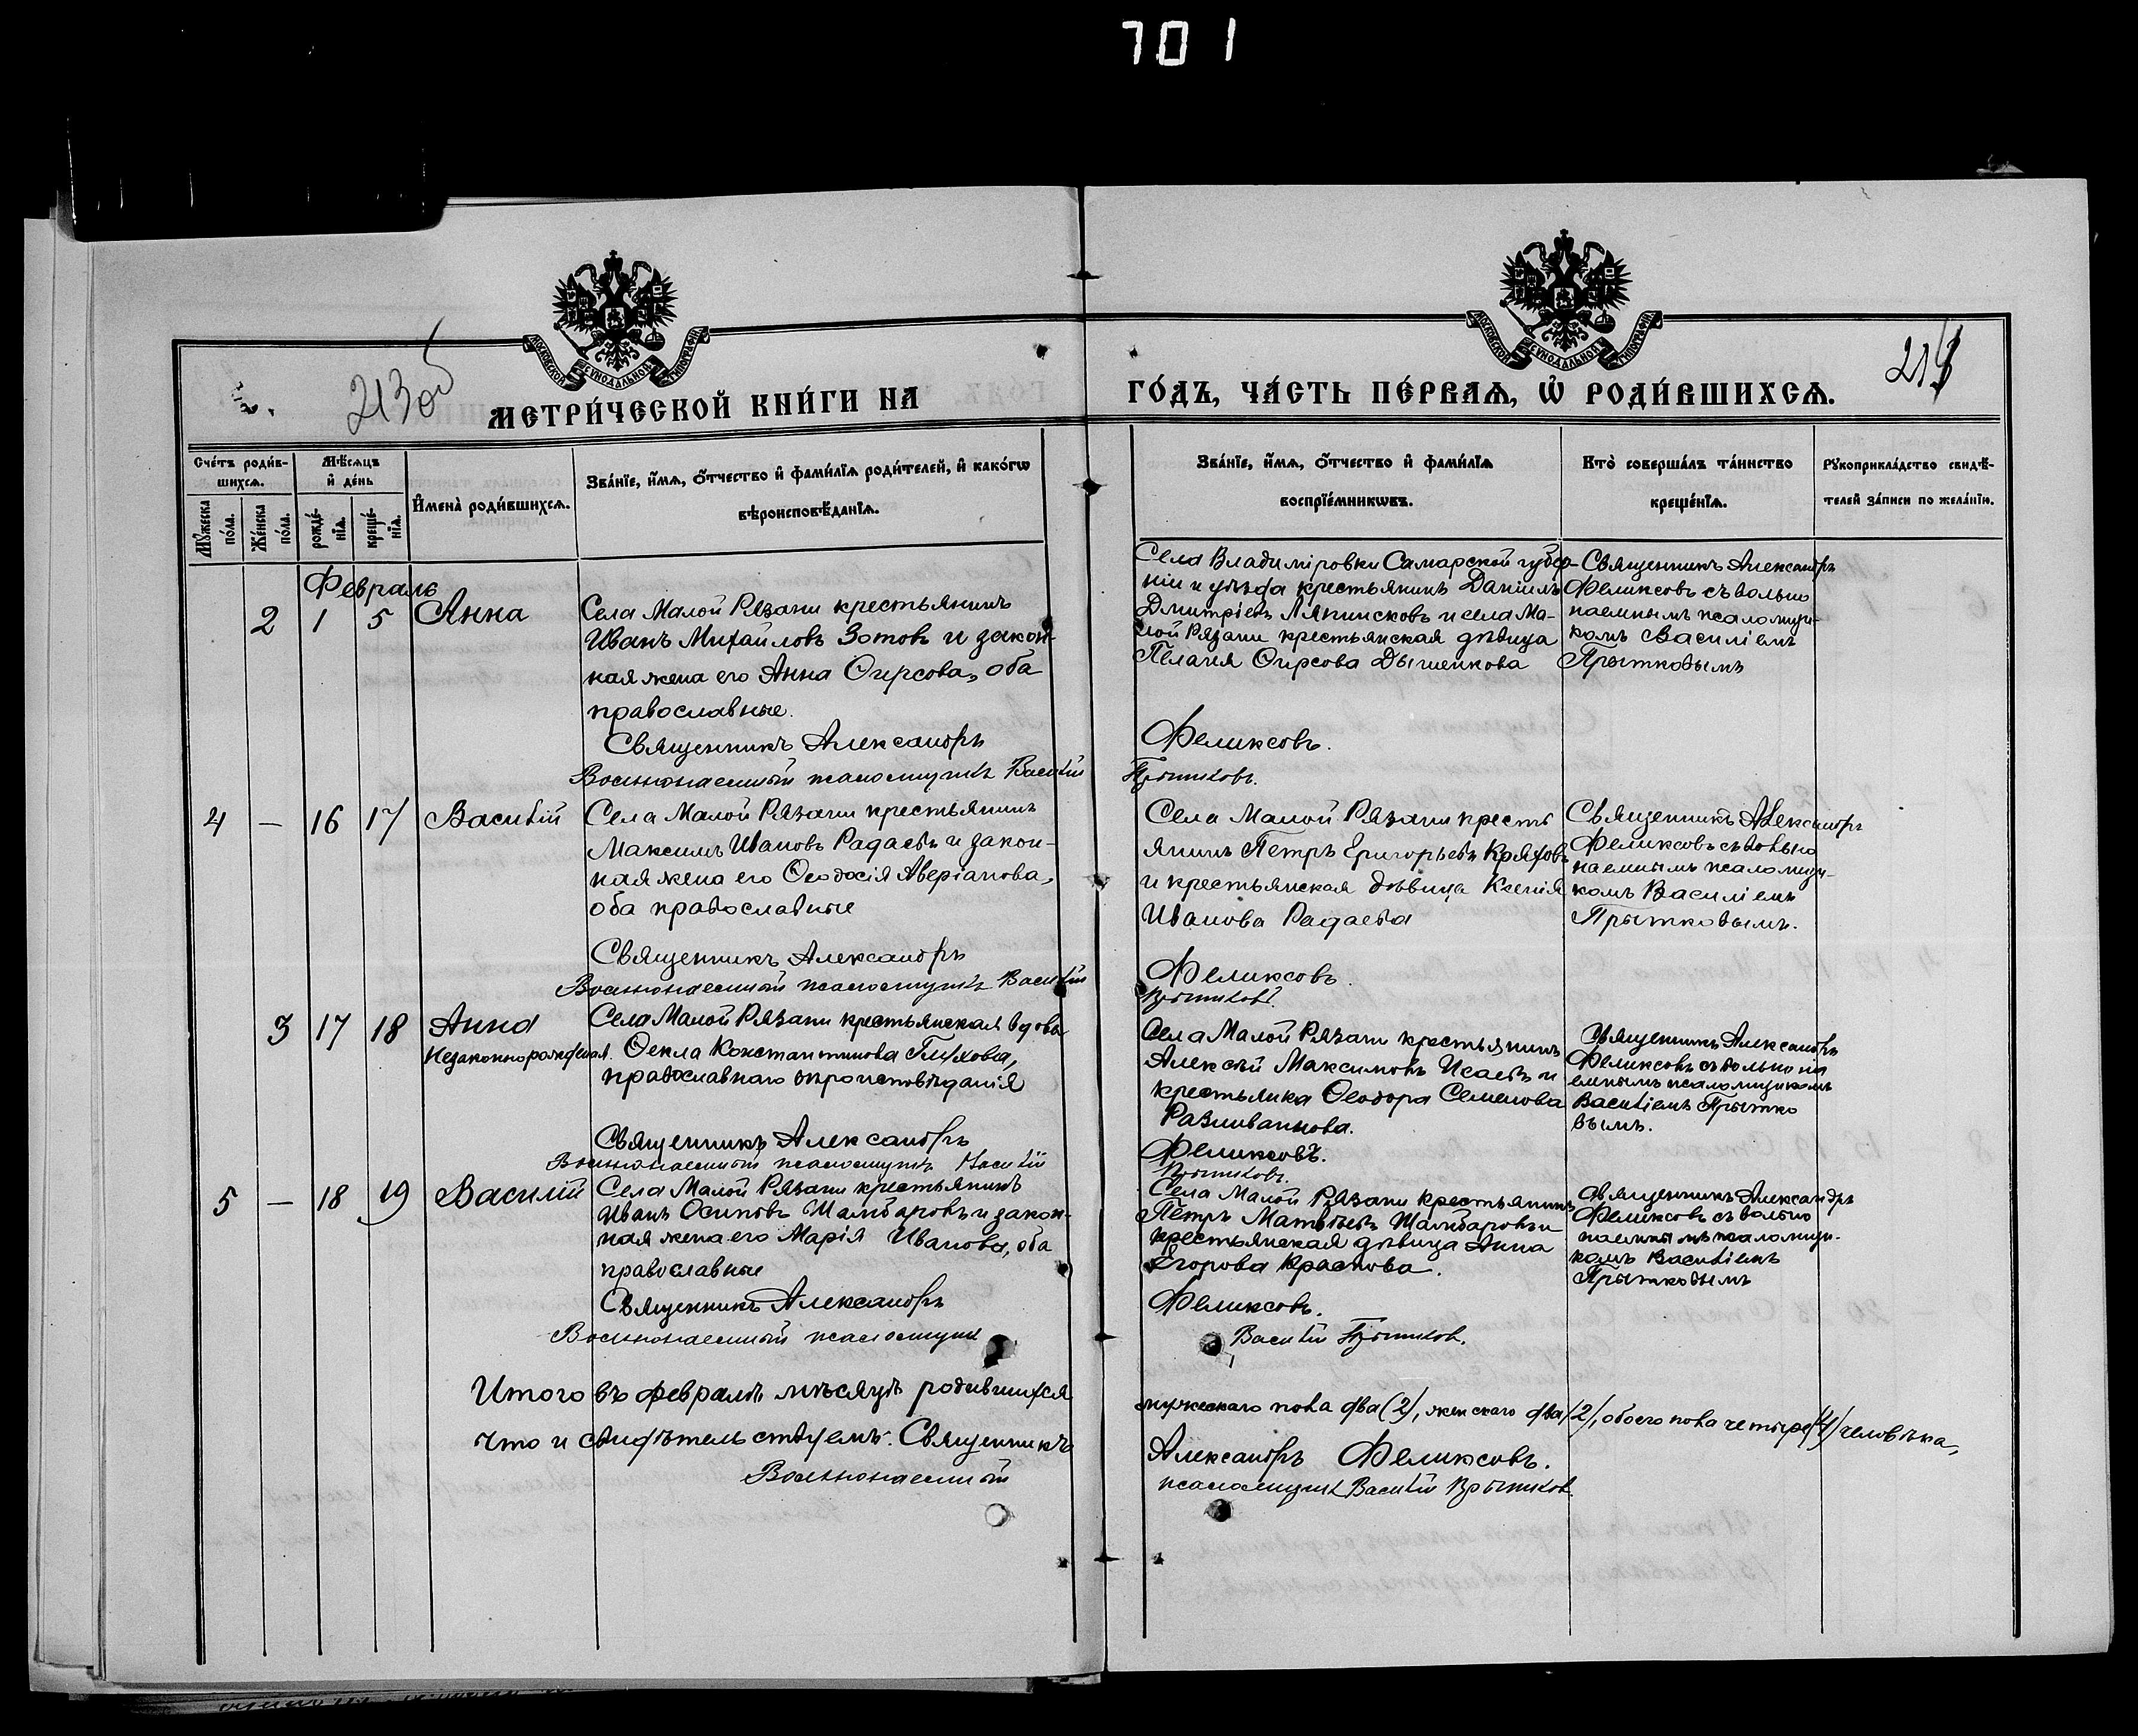 701
МОСКОВСКОЙ СѴНОДАЛЬНОЙ ТИПОГРАФІИ
МОСКОВСКОЙ СѴНОДАЛЬНОЙ ТИПОГРАФІИ
213 об
214
МЕТРИ́ЧЕСКОЙ КНИ́ГИ НА
ГО́ДЪ, ЧА́СТЬ ПЕ́РВАѦ, Ѡ҆ РОДИ́ВШИХСѦ.
Сче́тъ роди́в-
шихсѧ.
Мꙋ́жеска
по́ла.
Же́нска
по́ла.
Мѣ́сѧцъ
и҆ де́нь
рожде́-
нїѧ.
креще́-
нїѧ.
И҆мена̀ роди́вшихсѧ.
Зва́нїе, и҆́мѧ, ѻ҆́тчество и҆ фами́лїѧ роди́телей, и҆ како́гѡ
вѣроисповѣ́данїѧ.
Зва́нїе, и҆́мѧ, ѻ҆́тчество и҆ фами́лїѧ
воспрїе́мникѡвъ.
Кто̀ соверша́лъ та́инство
креще́нїѧ.
Рꙋкоприкла́дство свидѣ́-
телей за́писи по жела́нїю.
Февраль
2 1 5 Анна
Села Малой Рязани крестьянинъ
Иванъ Михайловъ Зотовъ и закон-
ная жена его Анна Ѳирсова, оба
православные.
Священникъ Александръ
Вольнонаемный псаломщикъ Василій
Села Владиміровки Самарской губер-
ніи и уѣзда крестьянинъ Даніилъ
Дмитріевъ Ляпинсковъ и села Ма-
лой Рязани крестьянская дѣвица
Пелагея Ѳирсова Дышенкова
Феликсовъ.
Прытковъ.
Священникъ Александръ
Феликсовъ съ вольно
наемнымъ псаломщи-
комъ Василіемъ
Прытковымъ
4 — 16 17 Василій
Села Малой Рязани крестьянинъ
Максимъ Ивановъ Радаевъ и закон-
ная жена его Ѳеодосія Аверіанова,
оба православные
Священникъ Александръ
Вольнонаемный псаломщикъ Василій
Села Малой Рязани кресть
янинъ Петръ Григорьевъ Кряховъ
и крестьянская дѣвица Ксенія
Иванова Радаева
Феликсовъ.
Прытковъ.
Священникъ Александръ
Феликсовъ съ вольно
наемнымъ псаломщи-
комъ Василіемъ
Прытковымъ.
3 17 18 Анна
незаконнорожденая.
Села Малой Рязани крестьянская вдова
Ѳекла Константинова Глухова,
православнаго вѣроисповѣданія
Священникъ Александръ
Вольнонаемный псаломщикъ Василій
Села Малой Рязани крестьянинъ
Алексѣй Максимовъ Исаевъ и
крестьянка Ѳеодора Семенова
Разливанова.
Феликсовъ.
Прытковъ.
Священникъ Александръ
Феликсовъ съ вольно на
емнымъ псаломщикомъ
Василіемъ Прытко
вымъ.
5 — 18 19 Василій
Села Малой Рязани крестьянинъ
Иванъ Осиповъ Шамбаровъ и закон-
ная жена его Марія Иванова, оба
православные
Священникъ Александръ
Вольнонаемный псаломщикъ
Села Малой Рязани крестьянинъ
Петръ Матвѣевъ Шамбаровъ и
крестьянская дѣвица Анна
Егорова Краснова.
Феликсовъ.
Василій Прытковъ.
Священникъ Александръ
Феликсовъ съ вольно
наемнымъ псаломщи-
комъ Василіемъ
Прытковымъ
Итого въ февралѣ мѣсяцѣ родившихся
мужескаго пола два (2), женскаго два (2), обоего пола четыре (4) человѣка,
что и свидѣтельствуемъ: Священникъ
Александръ Феликсовъ.
Вольнонаемный
псаломщикъ Василій Прытковъ.